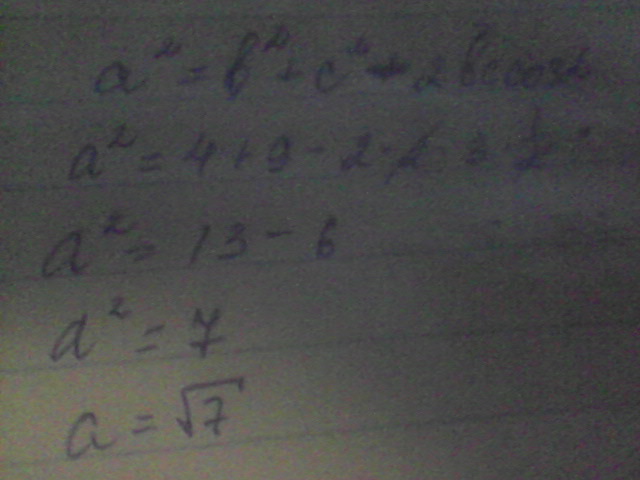 a² = b² + c² - 2bc cos α
a² = 4 + 9 - 2 · 2 · 3 · 1/2
a² = 13 - 6
a² = 7
a = √7